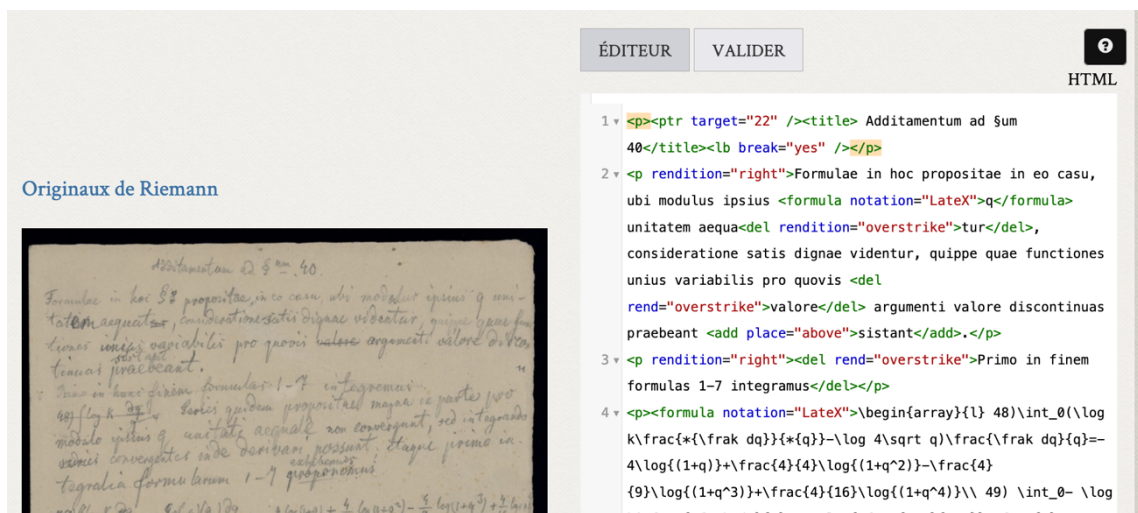 ÉDITEUR VALIDER
HTML
Originaux de Riemann
Additamentum ad § um. 40.
Formulae in hoc § propositae, in eo casu, ubi modulus ipsius q uni-
tatem aequatur, consideratione satis dignae videntur, quippe quae func
tiones unius variabilis pro quovis valore argumenti valore discon
tinuas praebeant.
sistant
Primo in hunc finem formulas 1-7 integremus.
48) ∫ log k Series quidem propositae magna ex parte pro
modulo ipsius q unitati aequali non convergunt, sed integrando
series convergentes inde derivari possunt. Itaque primo in-
exhibemus
tegralia formularum 1-7 proponemus
1 <p><ptr target="22" /><title> Additamentum ad §um
40</title><lb break="yes" /></p>
2 <p rendition="right">Formulae in hoc propositae in eo casu,
ubi modulus ipsius <formula notation="LateX">q</formula>
unitatem aequa<del rendition="overstrike">tur</del>,
consideratione satis dignae videntur, quippe quae functiones
unius variabilis pro quovis <del
rend="overstrike">valore</del> argumenti valore discontinuas
praebeant <add place="above">sistant</add>.</p>
3 <p rendition="right"><del rend="overstrike">Primo in finem
formulas 1-7 integramus</del></p>
4 <p><formula notation="LateX">\begin{array}{l} 48)\int_0(\log
k\frac{*{\frak dq}}{*{q}}-\log 4\sqrt q)\frac{\frak dq}{q}=-
4\log{(1+q)}+\frac{4}{4}\log{(1+q^2)}-\frac{4}
{9}\log{(1+q^3)}+\frac{4}{16}\log{(1+q^4)}\\ 49) \int_0- \log